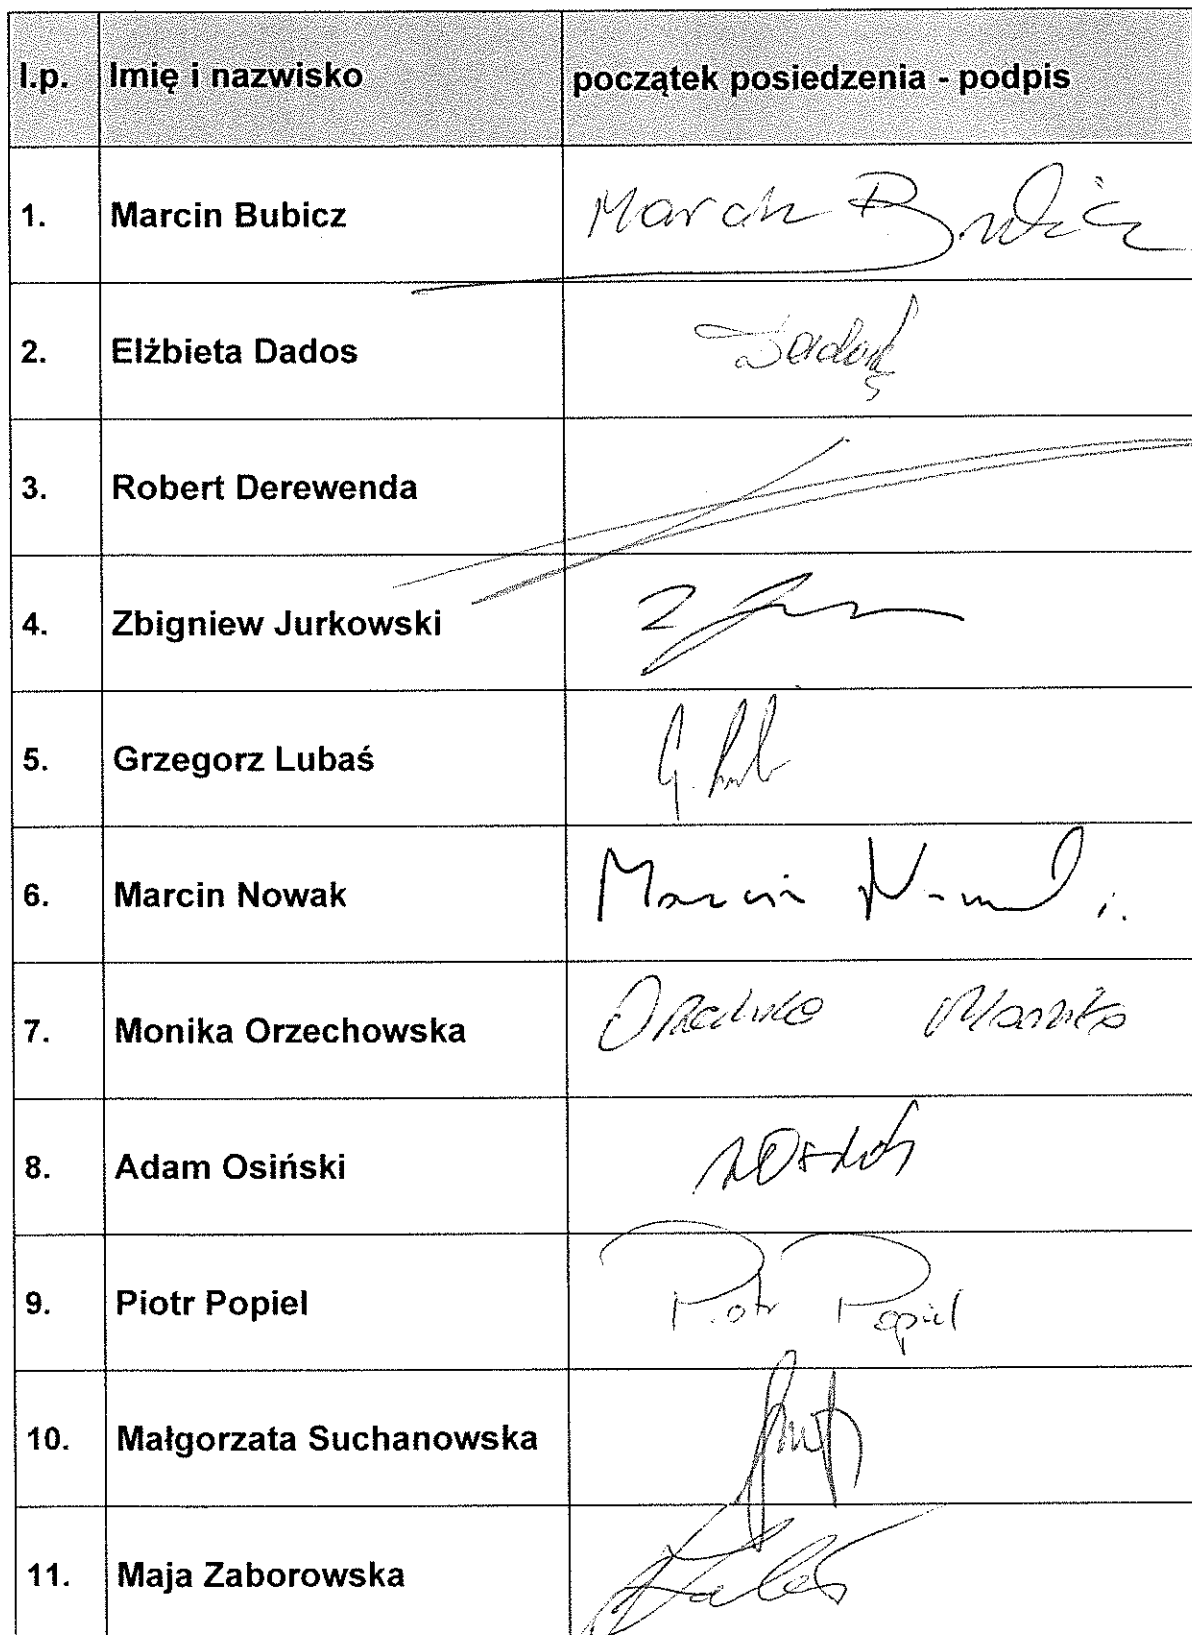 l.p. Imię i nazwisko początek posiedzenia - podpis
1. Marcin Bubicz Marcin Bubicz
2. Elżbieta Dados
3. Robert Derewenda
4. Zbigniew Jurkowski
5. Grzegorz Lubaś
6. Marcin Nowak Marcin
7. Monika Orzechowska Monika
8. Adam Osiński
9. Piotr Popiel Piotr Popiel
10. Małgorzata Suchanowska
11. Maja Zaborowska